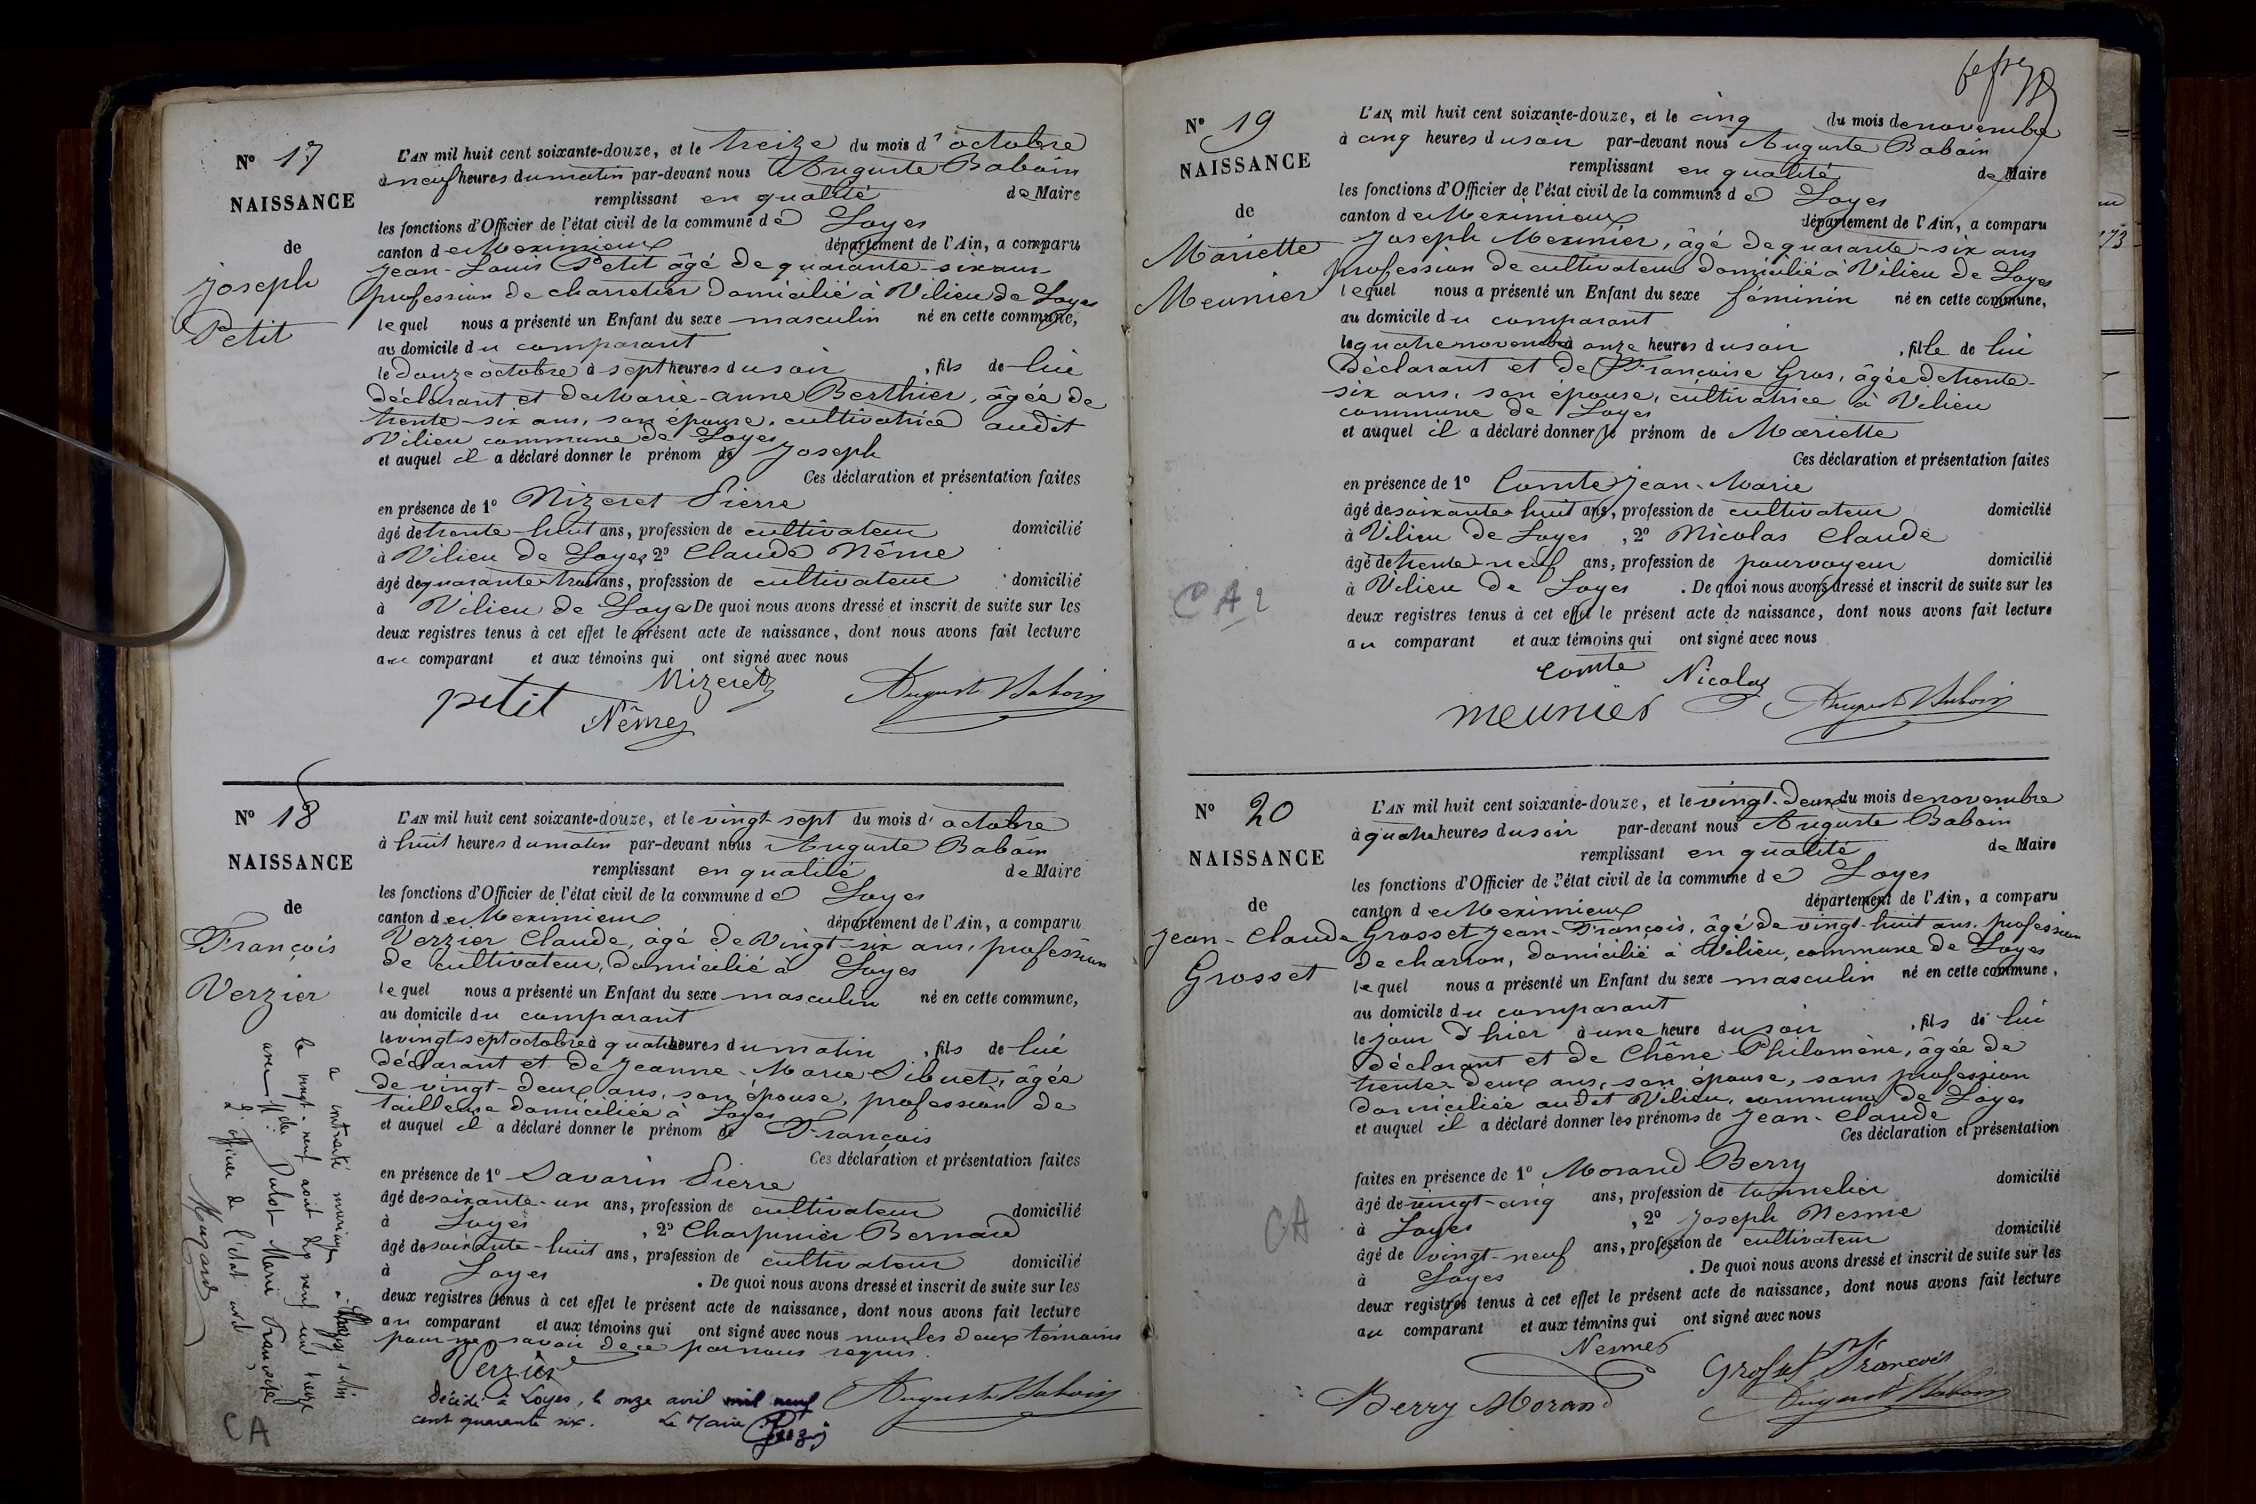 N° 17
NAISSANCE
de
Joseph
Petit
L'AN mil huit cent soixante-douze, et le treize du mois d'octobre
à neuf heures du matin par-devant nous Auguste Baboin
remplissant en qualité de Maire
les fonctions d'Officier de l'état civil de la commune de Loyes
canton de Meximieux département de l'Ain, a comparu
Jean-Louis Petit âgé de quarante-six ans
profession de charretier domicilié à Vilieu de Loyes
lequel nous a présenté un Enfant du sexe masculin né en cette commune,
au domicile du comparant
le douze octobre à sept heures du soir, fils de lui
déclarant et de Marie-anne Berthier, âgée de
trente-six ans, son épouse, cultivatrice audit
Vilieu commune de Loyes
et auquel il a déclaré donner le prénom de Joseph
Ces déclaration et présentation faites
en présence de 1° Mizeret Pierre
âgé de trente-huit ans, profession de cultivateur domicilié
à Vilieu de Loyes, 2° Claude Nême
âgé de quarante-trois ans, profession de cultivateur domicilié
à Vilieu de Loyes De quoi nous avons dressé et inscrit de suite sur les
deux registres tenus à cet effet le présent acte de naissance, dont nous avons fait lecture
au comparant et aux témoins qui ont signé avec nous
petit Mizeret Nême Auguste Baboin
N° 18
NAISSANCE
de
François
Verzier
L'AN mil huit cent soixante-douze, et le vingt sept du mois d'octobre
à huit heures du matin par-devant nous Auguste Baboin
remplissant en qualité de Maire
les fonctions d'Officier de l'état civil de la commune de Loyes
canton de Meximieux département de l'Ain, a comparu
Verzier Claude, âgé de vingt-six ans, profession
de cultivateur, domicilié à Loyes
lequel nous a présenté un Enfant du sexe masculin né en cette commune,
au domicile du comparant
le vingt-sept octobre à quatre heures du matin, fils de lui
déclarant et de Jeanne-Marie Sibuet, âgée
de vingt-deux ans, son épouse, profession de
tailleuse domiciliée à Loyes
et auquel il a déclaré donner le prénom de François
Ces déclaration et présentation faites
en présence de 1° Savarin Pierre
âgé de soixante-un ans, profession de cultivateur domicilié
à Loyes, 2° Charpinier Bernard
âgé de soixante-huit ans, profession de cultivateur domicilié
à Loyes. De quoi nous avons dressé et inscrit de suite sur les
deux registres tenus à cet effet le présent acte de naissance, dont nous avons fait lecture
au comparant et aux témoins qui ont signé avec nous non les deux témoins
pour ne savoir de ce par nous requis.
Verzier Auguste Baboin
Décédé à Loyes, le onze avril mil neuf
cent quarante six. Le Maire
a contracté mariage à
le vingt neuf août neuf cent treize
avec Mlle Marie Françoise
L'officier de l'état civil,
CA
N° 19
NAISSANCE
de
Mariette
Meunier
L'AN mil huit cent soixante-douze, et le cinq du mois de novembre
à cinq heures du soir par-devant nous Auguste Baboin
remplissant en qualité de Maire
les fonctions d'Officier de l'état civil de la commune de Loyes
canton de Meximieux département de l'Ain, a comparu
Joseph Meunier, âgé de quarante-six ans
profession de cultivateur domicilié à Vilieu de Loyes
lequel nous a présenté un Enfant du sexe féminin né en cette commune,
au domicile du comparant
le quatre novembre à onze heures du soir, fille de lui
déclarant et de Françoise Gros, âgée de trente-
six ans, son épouse, cultivatrice à Vilieu
commune de Loyes
et auquel il a déclaré donner le prénom de Mariette
Ces déclaration et présentation faites
en présence de 1° Comte Jean-Marie
âgé de soixante-huit ans, profession de cultivateur domicilié
à Vilieu de Loyes, 2° Nicolas Claude
âgé de trente-neuf ans, profession de pourvoyeur domicilié
à Vilieu de Loyes. De quoi nous avons dressé et inscrit de suite sur les
deux registres tenus à cet effet le présent acte de naissance, dont nous avons fait lecture
au comparant et aux témoins qui ont signé avec nous
comte Nicolas
meunier Auguste Baboin
CA 2
N° 20
NAISSANCE
de
Jean-Claude
Grosset
L'AN mil huit cent soixante-douze, et le vingt-deux du mois de novembre
à quatre heures du soir par-devant nous Auguste Baboin
remplissant en qualité de Maire
les fonctions d'Officier de l'état civil de la commune de Loyes
canton de Meximieux département de l'Ain, a comparu
Grosset Jean-François, âgé de vingt-huit ans, profession
de charron, domicilié à Vilieu, commune de Loyes
lequel nous a présenté un Enfant du sexe masculin né en cette commune,
au domicile du comparant
le jour d'hier à une heure du soir, fils de lui
déclarant et de Chêne Philomène, âgée de
trente-deux ans, son épouse, sans profession
domiciliée audit Vilieu, commune de Loyes
et auquel il a déclaré donner les prénoms de Jean-Claude
Ces déclaration et présentation
faites en présence de 1° Morand Berry
âgé de vingt-cinq ans, profession de tonnelier domicilié
à Loyes, 2° Joseph Nesme
âgé de vingt-neuf ans, profession de cultivateur domicilié
à Loyes. De quoi nous avons dressé et inscrit de suite sur les
deux registres tenus à cet effet le présent acte de naissance, dont nous avons fait lecture
au comparant et aux témoins qui ont signé avec nous
Nesmes Grosset François
Berry Morand Auguste Baboin
CA